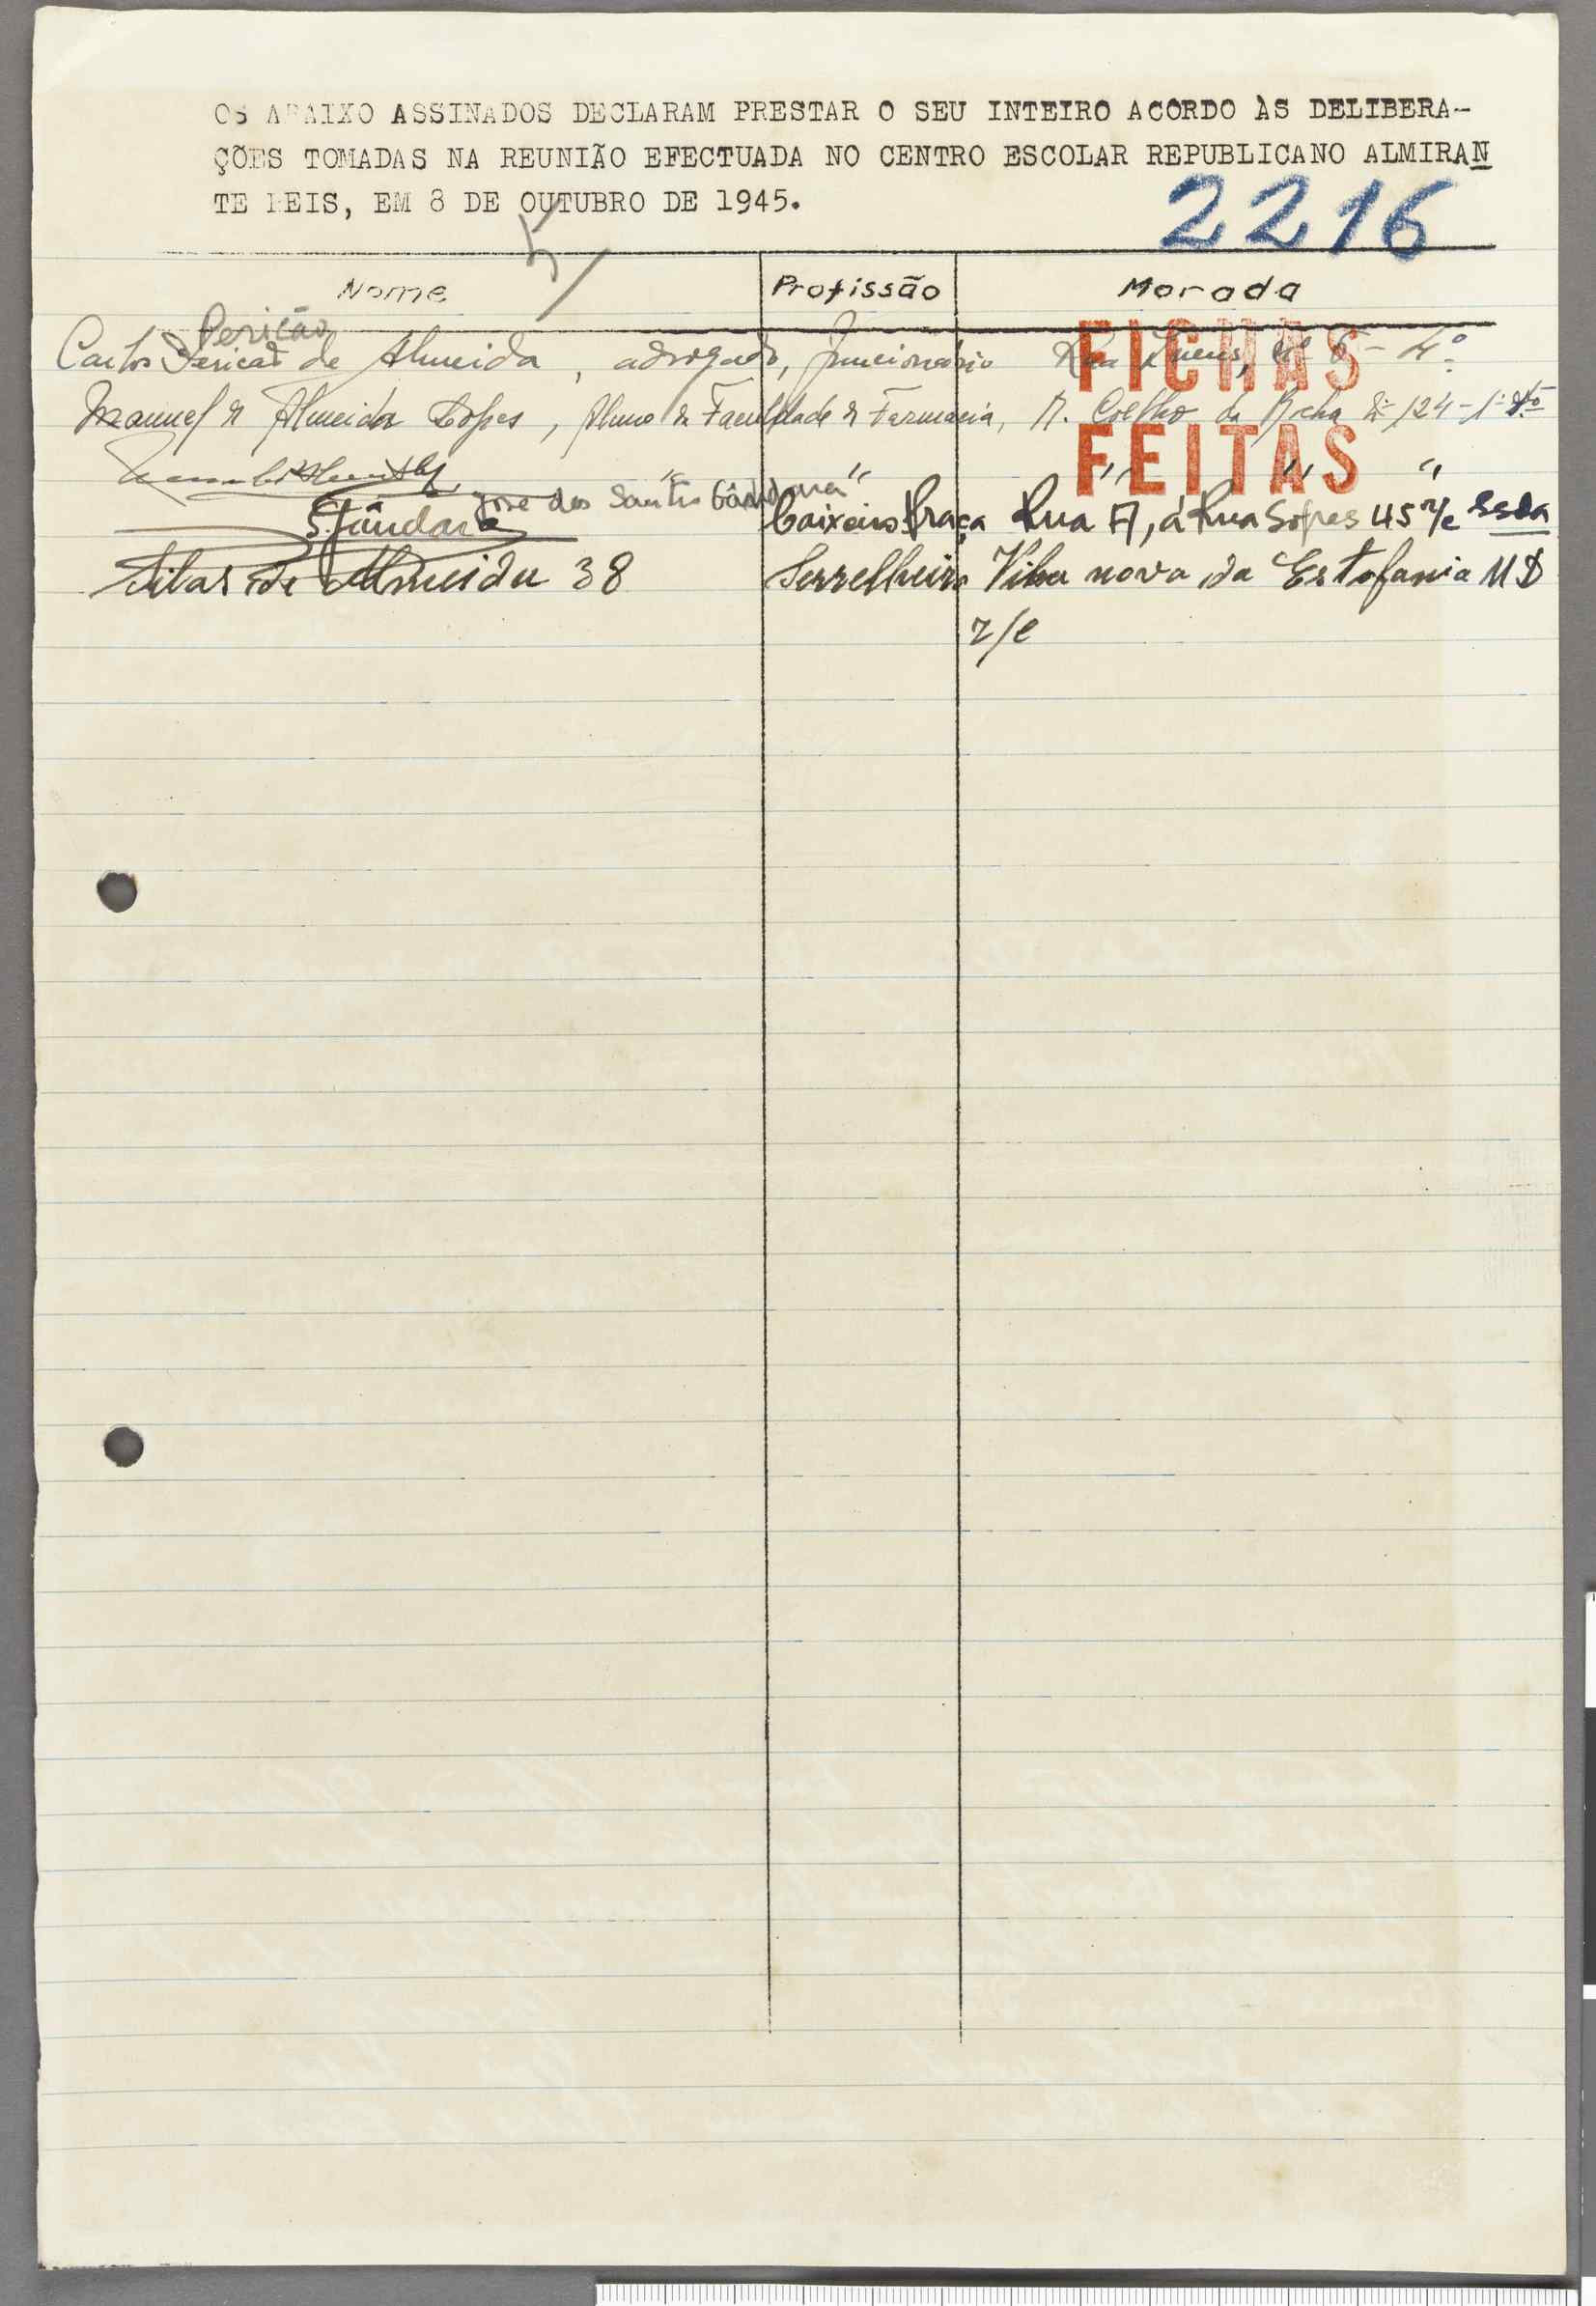 OS ABAIXO ASSINADOS DECLARAM PRESTAR O SEU INTEIRO ACORDO ÀS DELIBERA-
ÇÕES TOMADAS NA REUNIÃO EFECTUADA NO CENTRO ESCOLAR REPUBLICANO ALMIRAN
TE REIS, EM 8 DE OUTUBRO DE 1945.
2216
5/
Nome Profissão Morada
Perição
FICHAS
FEITAS
Carlos Pericão de Almeida, advogado, funcionário Rua 6 - 4º
Manuel de Almeida Lopes, Aluno da Faculdade de Farmacia, R. Coelho da Rocha Nº 124-1º Dto
" " " " "
José dos Santos Gândara
S. Gândara Caixeiro Praça Rua A, á Rua 45 r/c
Silas de Almeida 38 Serralheiro Vila nova da Estefania 11 D
r/c